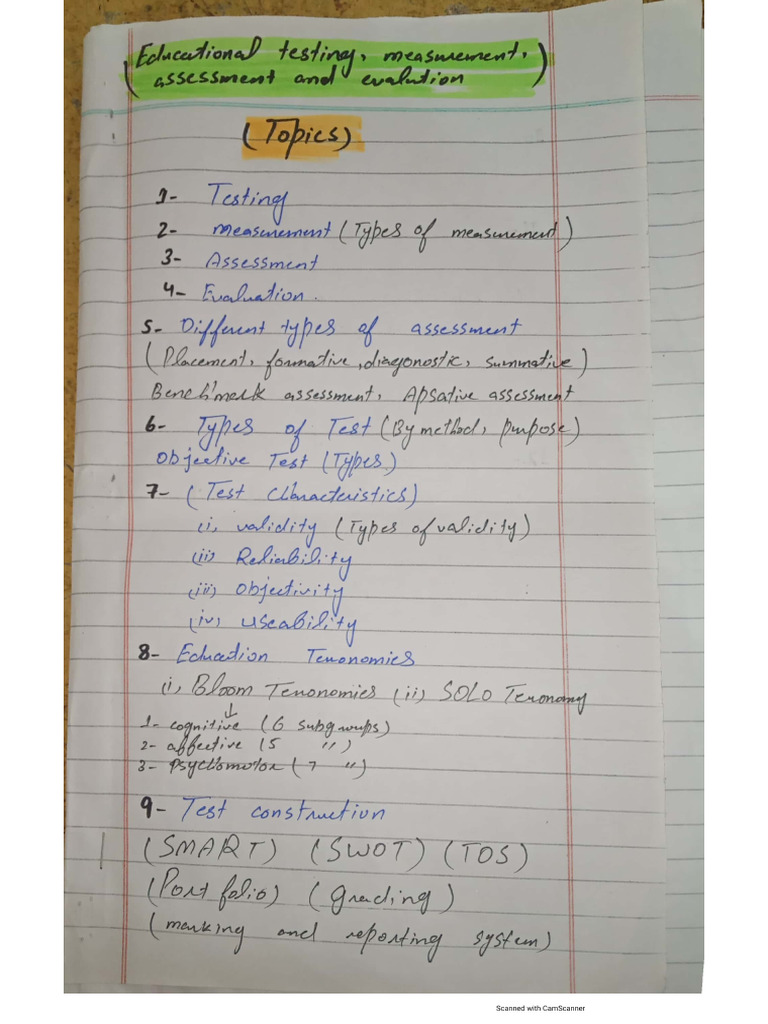 (Educational testing, measurement,
assessment and evalution)
(Topics)
1- Testing
2- measurement (Types of measurement)
3- Assessment
4- Evaluation.
5- Different types of assessment
(Placement, formative, diagonostic, summative)
Benchmark assessment, Apsative assessment
6- Types of Test (By method, purpose)
Objective Test (Types)
7- (Test characteristics)
(i, validity (Types of validity)
(ii) Reliability
(iii) Objectivity
(iv) useability
8- Education Tenonomies
(i, Bloom Tenonomies (ii) SOLO Tenonomy
1- cognitive (6 subgroups)
2- affective (5 ")
3- psychomotor (7 ")
9- Test construction
(SMART) (SWOT) (TOS)
(Port folio) (grading)
(marking and reporting system)
Scanned with CamScanner